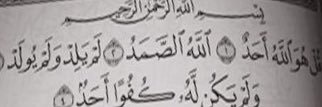 بِسْمِ اللَّهِ الرَّحْمَٰنِ الرَّحِيمِ
قُلْ هُوَ اللَّهُ أَحَدٌ ١ اللَّهُ الصَّمَدُ ٢ لَمْ يَلِدْ وَلَمْ يُولَدْ ٣
وَلَمْ يَكُن لَّهُۥ كُفُوًا أَحَدٌۢ ٤